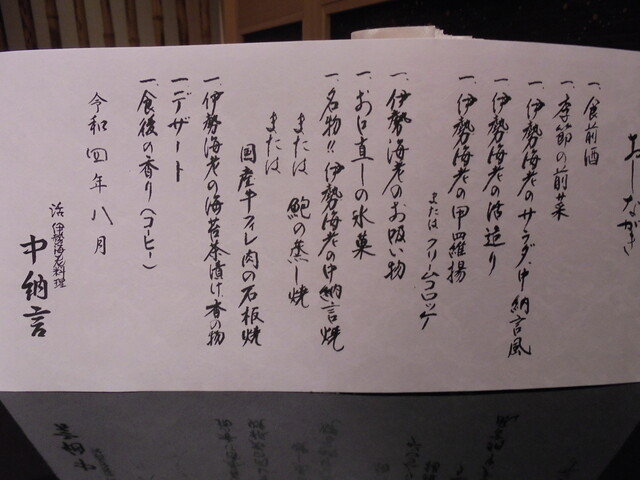 おしながき
一、食前酒
一、季節の前菜
一、伊勢海老のサラダ、中納言風
一、伊勢海老の活造り
一、伊勢海老の甲羅揚
またはクリームコロッケ
一、伊勢海老のお吸い物
一、お口直しの氷菓
一、名物!!伊勢海老の中納言焼
または 鮑の蒸し焼
または
国産牛フィレ肉の石板焼
一、伊勢海老の海苔茶漬け、香の物
一、デザート
一、食後の香り(コーヒー)
令和四年八月
活 伊勢海老料理
中納言